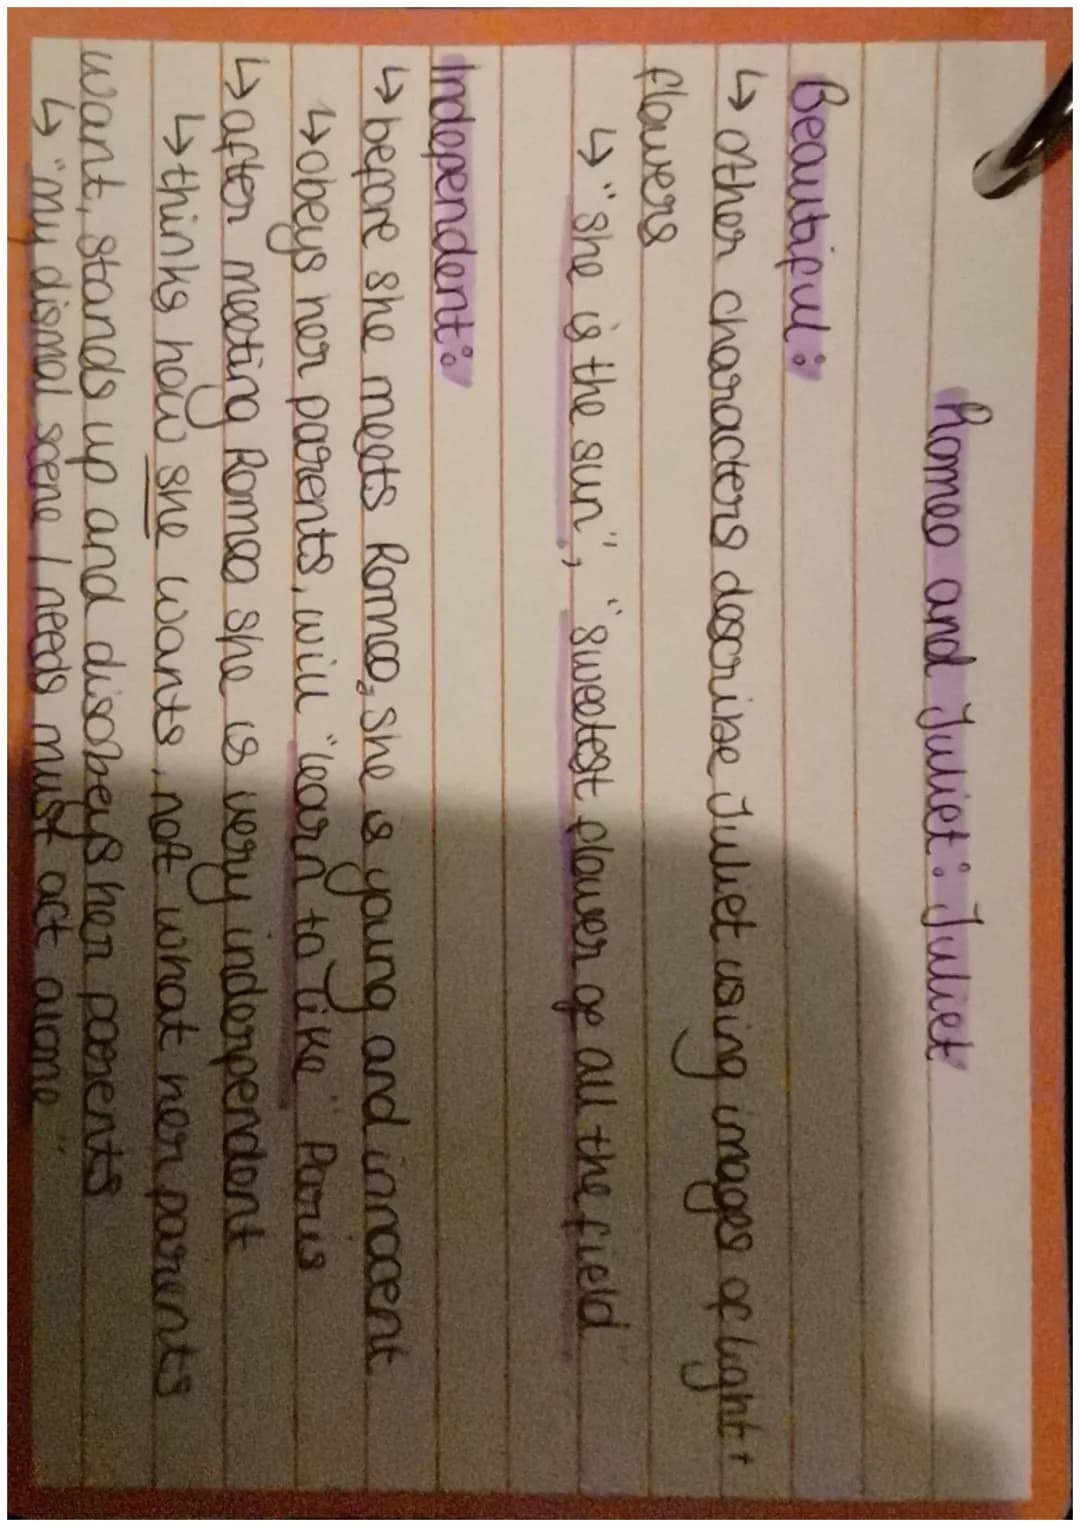 Romeo and Juliet: Juliet
Beautiful:
↳ other characters describe Juliet using images of light +
flowers
↳ "she is the sun", "sweetest flower of all the field"
Independent:
↳ before she meets Romeo, she is young and innocent
↳ obeys her parents, will "learn to like" Paris
↳ after meeting Romeo she is very independent
↳ thinks how she wants, not what her parents
want, stands up and disobeys her parents
↳ "my dismal scene I needs must act alone"